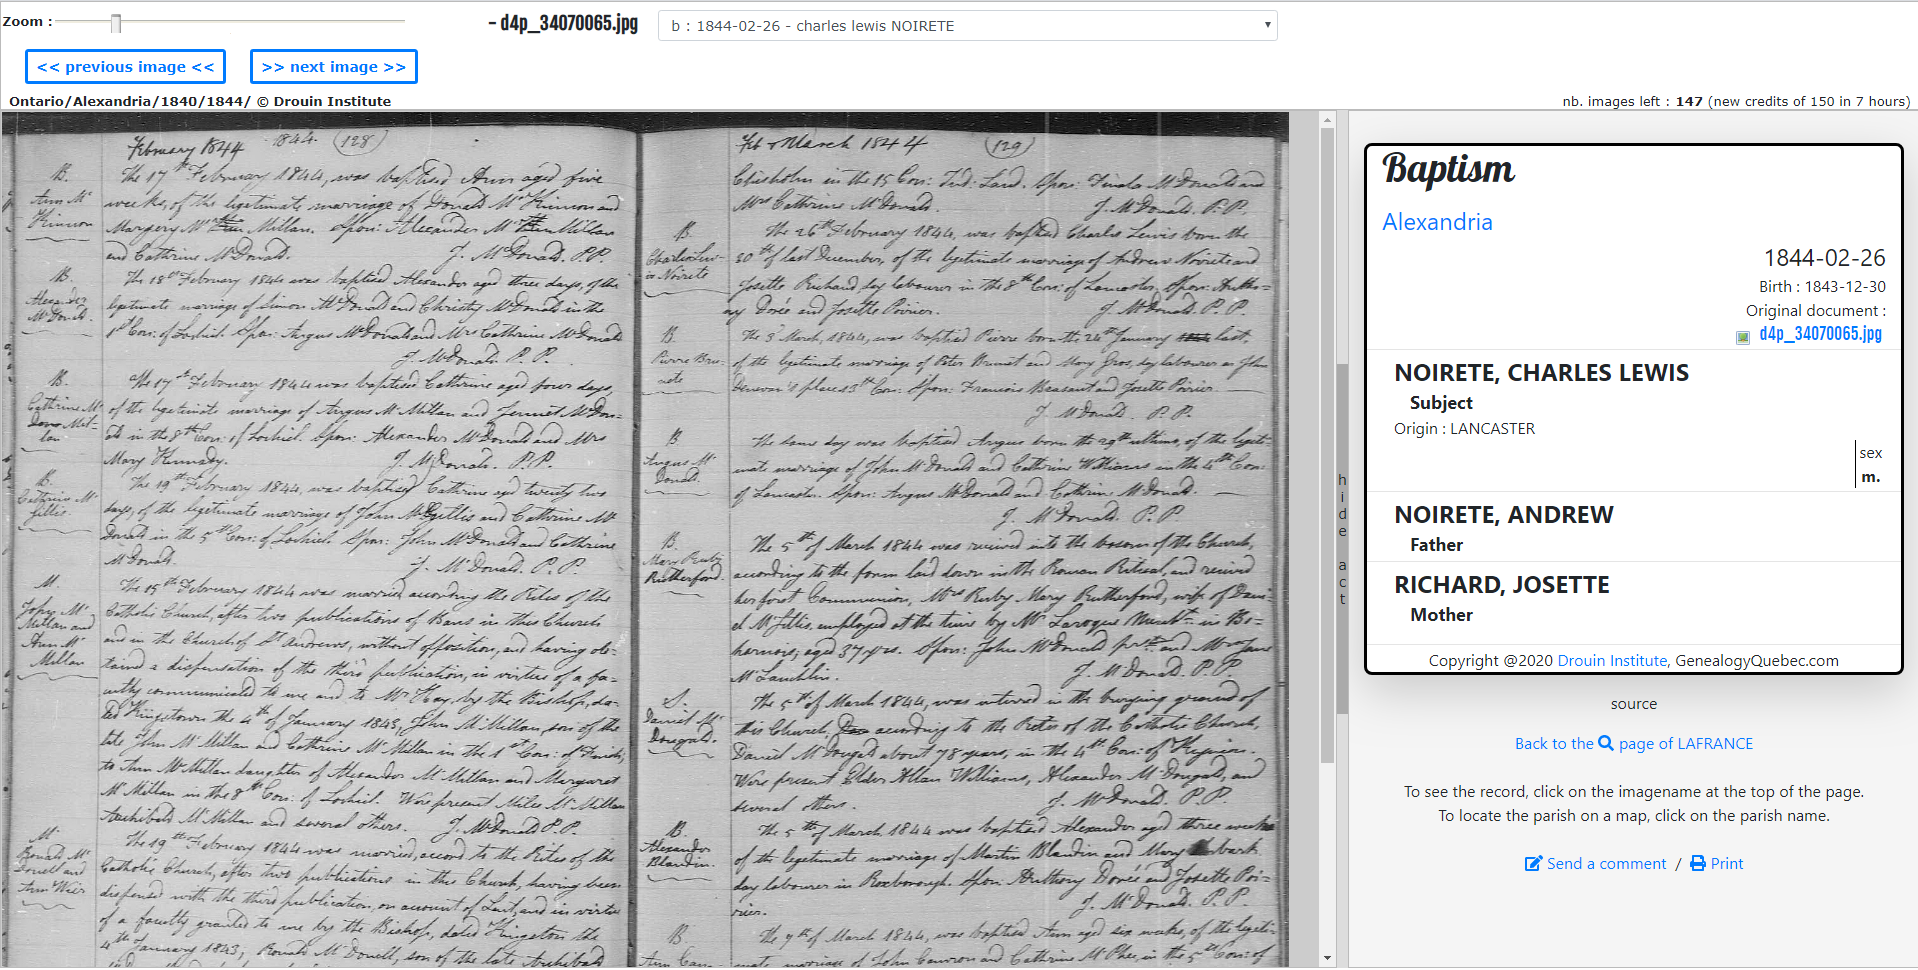 Zoom :
- d4p_34070065.jpg
b : 1844-02-26 - charles lewis NOIRETE
<< previous image <<
>> next image >>
Ontario/Alexandria/1840/1844/ © Drouin Institute
nb. images left : 147 (new credits of 150 in 7 hours)
February 1844 1844. (128)
B.
Ann Mc
Kinnon
The 17th February 1844, was baptised Ann aged five
weeks, of the legitimate marriage of Donald McKinnon and
Margery Mc Millan. Spon: Alexander Mc Millan
and Cathrine McDonald. J. McDonald. P.P.
B.
Alexander
McDonald.
The 18th February 1844 was baptised Alexander aged three days, of the
legitimate marriage of Simon McDonald and Christy McDonald in the
1st Con: of Lochiel. Spon: Angus McDonald and Mrs Cathrine McDonald
J. McDonald. P.P.
B.
Cathrine Mc
Millan
The 17th February 1844 was baptised Cathrine aged four days,
of the legitimate marriage of Angus McMillan and Jennet McDon=
ald in the 8th Con: of Lochiel. Spon: Alexander McDonald and Mrs
Mary Kennedy. J. McDonald. P.P.
B.
Cathrine Mc
Gillis.
The 19th February 1844, was baptised Cathrine aged twenty two
days, of the legitimate marriage of John McGillis and Cathrine Mc
Donald in the 5th Con: of Lochiel. Spon: John McDonald and Cathrine
McDonald. J. McDonald. P.P.
M.
John Mc
Millan and
Ann Mc
Millan
The 15th February 1844 was married according the Rites of the
Catholic Church, after two publications of Bans in this Church
and in the Church of St Andrews, without opposition, and having ob=
tained a dispensation of the third publication, in virtue of a fa=
culty communicated to me and to Mr Hay, by the Bishop, da=
ted Kingstown the 4th of January 1843, John McMillan, son of the
late John McMillan and Cathrine McMillan in the 1st Con: of
to Ann McMillan daughter of Alexander McMillan and Margaret
McMillan in the 8th Con: of Lochiel. Were present Miles McMillan
Archibald McMillan and several others. J. McDonald P.P.
M.
Ronald Mc
Donell and
Ann Weir
The 19th February 1844 was married, accord to the Rites of the
Catholic Church, after two publications in this Church, having been
dispensed with the third publication, on account of Lent, and in virtue
of a faculty granted to me by the Bishop, dated Kingston the
4th January 1843, Ronald McDonell, son of the late Archibald
Feb & March 1844 (129)
Chisholm in the 15 Con: Ind: Land. Spon: Finola McDonald and
Mrs Cathrine McDonald. J. McDonald. P.P.
B
Charles Lew=
is Noirete
The 26th February 1844, was baptised Charles Lewis born the
30th of last December, of the legitimate marriage of Andrew Noirete and
Josette Richard, day labourer in the 8th Con: of Lancaster. Spon: Antho=
ny Dorée and Josette Poirier. J. McDonald. P.P.
B.
Pierre Bru=
nete
The 3d March, 1844, was baptised Pierre born the 24th January last,
of the legitimate marriage of Peter Brunet and Mary Gros, day labourer on John
place 3th Con: Spon: Francois and Josette Poirier
J. McDonald. P.P.
B
Angus Mc
Donald.
The same day was baptised Angus born the 29th ultimo, of the legiti=
mate marriage of John McDonald and Cathrine Williams in the 4th Con:
of Lancaster. Spon: Angus McDonald and Cathrine McDonald.
J. McDonald. P.P.
B.
Mary Ruby
Rutherford.
The 5th of March 1844 was received into the bosom of the Church,
according to the form laid down in the Roman Ritual, and received
her first Communion, Mrs Ruby Mary Rutherford, wife of Dani=
el McGillis, employed at the time by Mr Laroque Mercht in
aged 37 yrs. Spon: John McDonald and Mrs Jane
McLaughlin. J. McDonald. P.P.
S.
Daniel Mc
Dougald.
The 5th of March 1844, was interred in the burying ground of
this Church, according to the Rites of the Catholic Church,
Daniel McDougald about 78 years, in the 4th Con: of Kenyon.
Were present Elder Allan Williams, Alexander McDougald, and
several others. J. McDonald. P.P.
B.
Alexander
Blandin.
The 5th of March 1844 was baptised Alexander aged three weeks
of the legitimate marriage of Martin Blandin and Mary
day labourer in Roxborough. Spon: Anthony Dorée and Josette Poi=
rier. J. McDonald. P.P.
B.
Ann Cam=
The 7th of March 1844, was baptised Ann aged six weeks, of the legiti=
mate marriage of John Cameron and Cathrine McPhee, in the 5th Con: of
hide act
Baptism
Alexandria
1844-02-26
Birth : 1843-12-30
Original document :
d4p_34070065.jpg
NOIRETE, CHARLES LEWIS
Subject
Origin : LANCASTER
sex
m.
NOIRETE, ANDREW
Father
RICHARD, JOSETTE
Mother
Copyright @2020 Drouin Institute, GenealogyQuebec.com
source
Back to the page of LAFRANCE
To see the record, click on the imagename at the top of the page.
To locate the parish on a map, click on the parish name.
Send a comment / Print